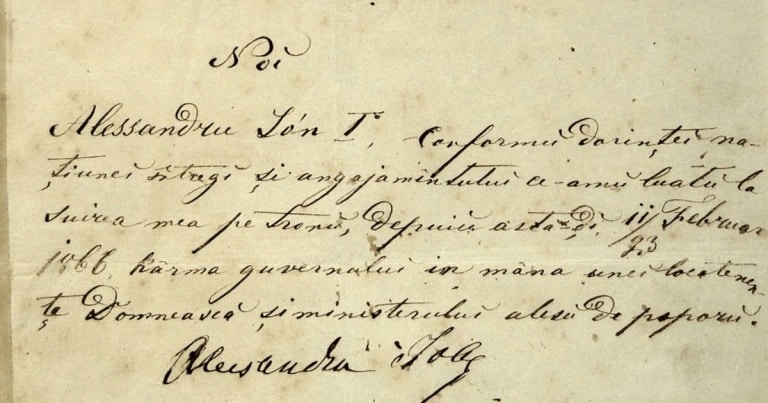 Noi
Alessandru Ión I. Conformŭ dorinței na-
țiunei ıntregĭ și angajamintului ce-amŭ luatŭ la
suirea mea pe tronŭ, depuiŭ asta-ḑĭ 11/23 Februar
1866 kârma guvernului in mâna unei locotenen-
țe Domneascǎ și ministerului alesŭ de poporŭ.
Alecsandru Ioan